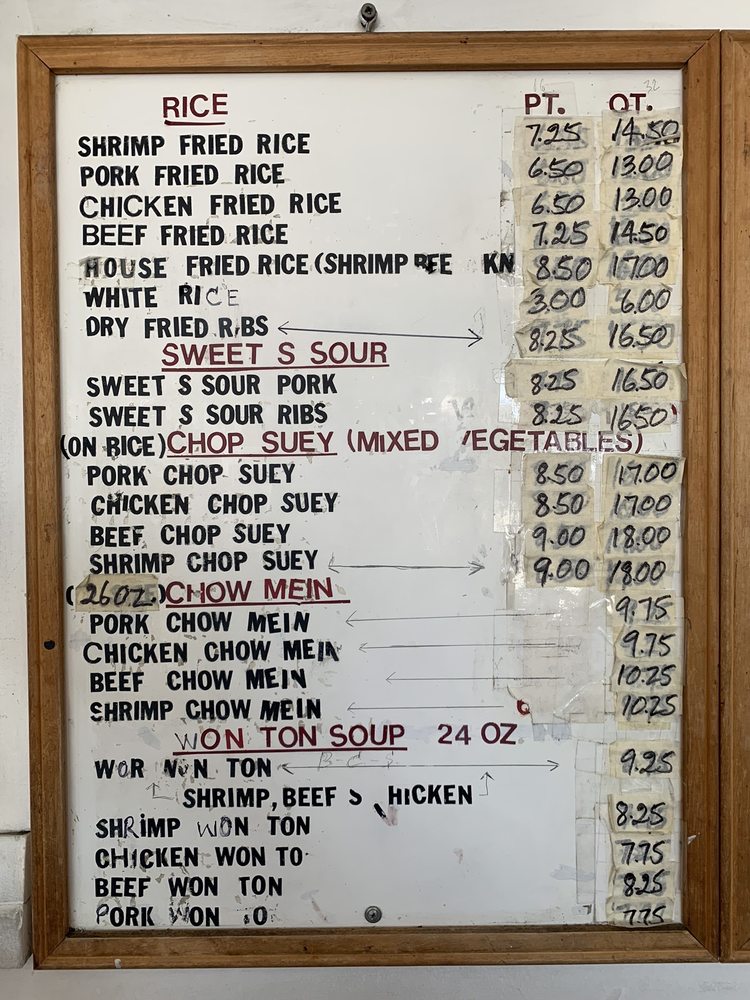 16 32
RICE PT. QT.
SHRIMP FRIED RICE 7.25 14.50
PORK FRIED RICE 6.50 13.00
CHICKEN FRIED RICE 6.50 13.00
BEEF FRIED RICE 7.25 14.50
HOUSE FRIED RICE (SHRIMP BEE KN 8.50 17.00
WHITE RICE 3.00 6.00
DRY FRIED RIBS 8.25 16.50
SWEET S SOUR
SWEET S SOUR PORK 8.25 16.50
SWEET S SOUR RIBS 8.25 16.50
(ON RICE) CHOP SUEY (MIXED VEGETABLES)
PORK CHOP SUEY 8.50 17.00
CHICKEN CHOP SUEY 8.50 17.00
BEEF CHOP SUEY 9.00 18.00
SHRIMP CHOP SUEY 9.00 18.00
(26 OZ.) CHOW MEIN
PORK CHOW MEIN 9.75
CHICKEN CHOW MEIN 9.75
BEEF CHOW MEIN 10.25
SHRIMP CHOW MEIN 10.25
WON TON SOUP 24 OZ
WOR WON TON B-C-S 9.25
SHRIMP, BEEF S HICKEN
SHRIMP WON TON 8.25
CHICKEN WON TO 7.75
BEEF WON TON 8.25
PORK WON TO 7.75